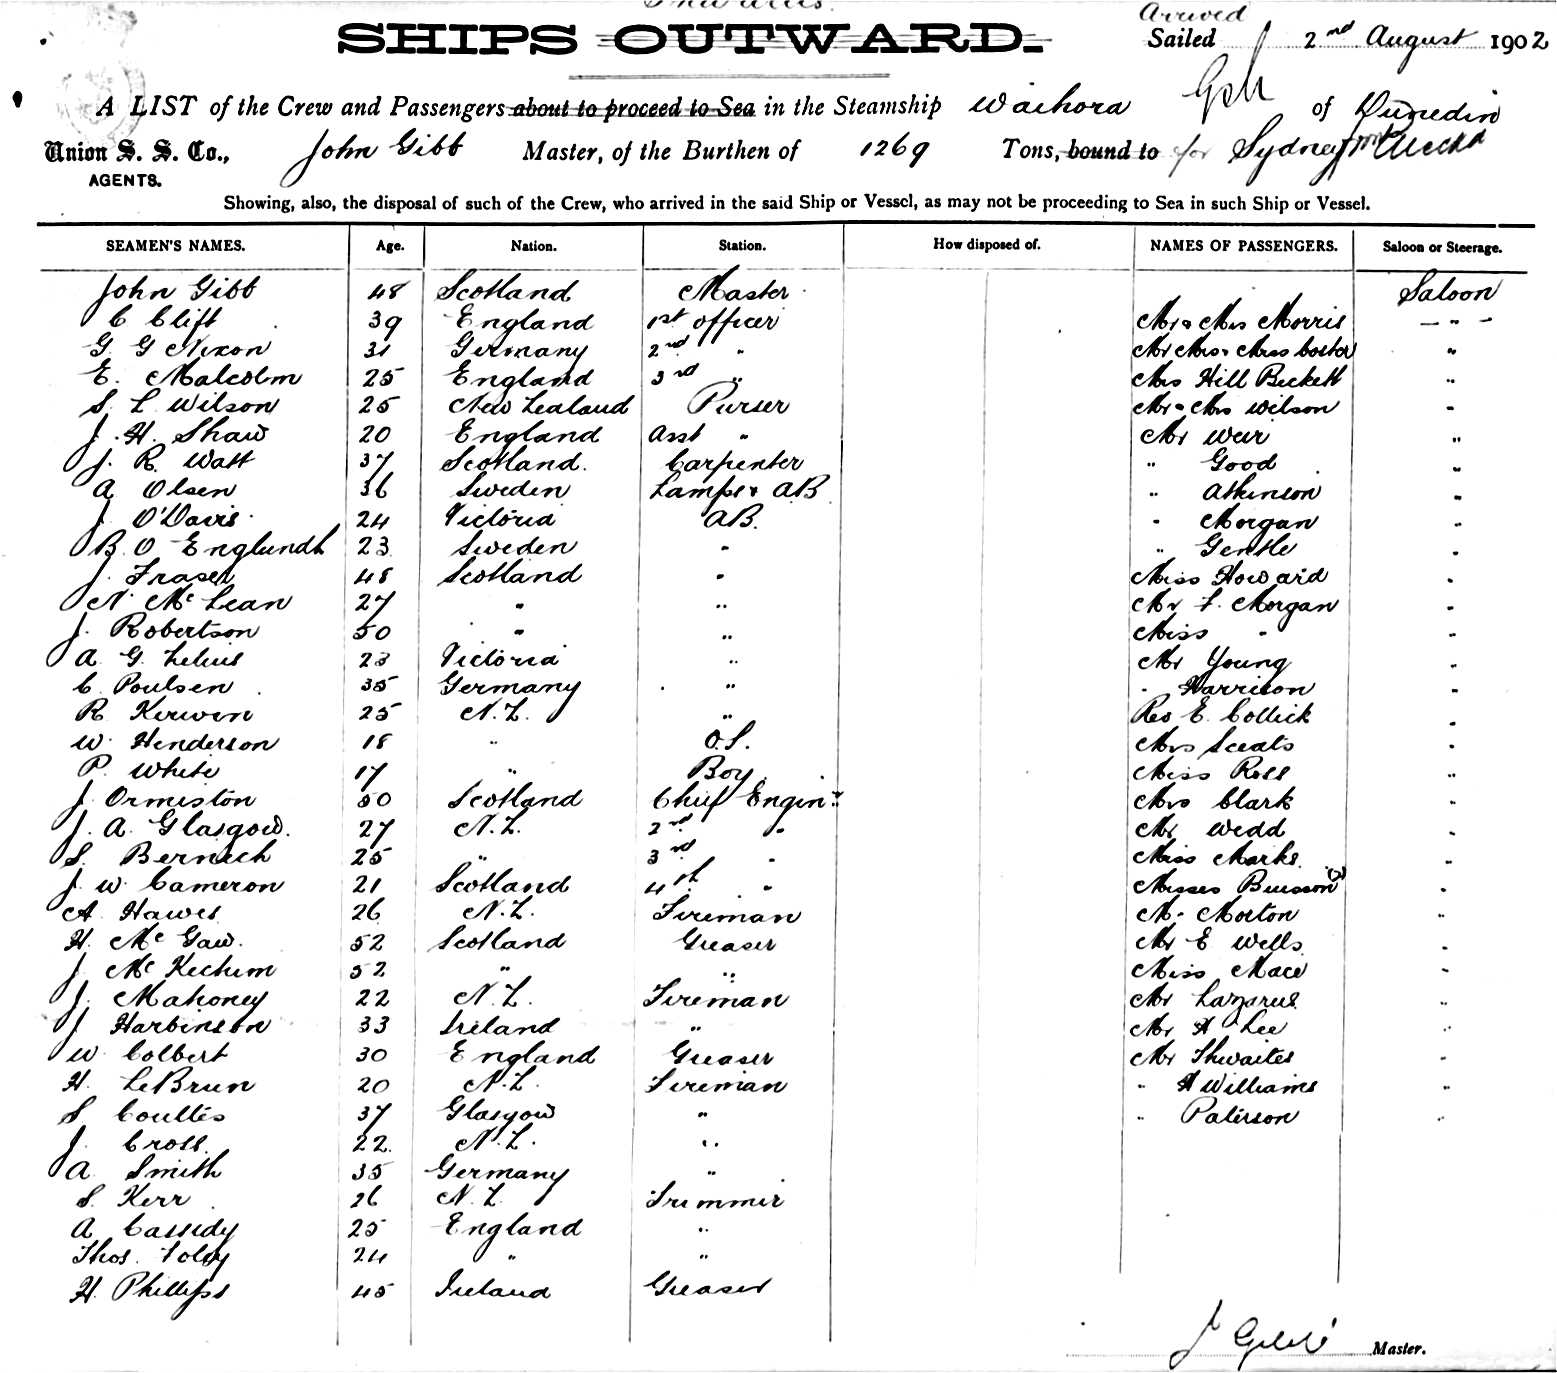 Inwards
SHIPS OUTWARD.
Arrived
Sailed 2nd August 1902
A LIST of the Crew and Passengers about to proceed to Sea in the Steamship Waihora of Dunedin
Union S. S. Co., AGENTS. John Gibb Master, of the Burthen of 1269 Tons, bound to for Sydney from
Showing, also, the disposal of such of the Crew, who arrived in the said Ship or Vessel, as may not be proceeding to Sea in such Ship or Vessel.
SEAMEN'S NAMES. Age. Nation. Station. How disposed of. NAMES OF PASSENGERS. Saloon or Steerage.
John Gibb 48 Scotland Master Saloon
C Clift 39 England 1st officer Mr & Mrs Morris — " —
G. G Nixon 31 Germany 2nd " Mr Mrs & Miss Coster "
E. Malcolm 25 England 3rd " Mrs Hill Beckett "
S. L Wilson 25 New Zealand Purser Mr & Mrs Wilson "
J. H. Shaw 20 England Asst " Mr Weir "
J. R. Watt 37 Scotland. Carpenter " Good "
A Olsen 36 Sweden Lamps & AB " Atkinson "
J. O'Davis 24 Victoria AB. " Morgan "
B. O Englundh 23 Sweden " " Gentle "
J. Fraser 48 Scotland " Miss Howard "
N. McLean 27 " " Mr F. Morgan "
J. Robertson 50 " " Miss " "
A G. Lelius 23 Victoria " Mr Young "
C. Poulsen 35 Germany " " Harrison "
R Kerwen 25 N.Z. " Rev E. Collick "
W. Henderson 18 " O.S. Mrs Sceats "
P. White 17 " Boy. Miss Ross "
J. Ormiston 50 Scotland Chief Enginr Mrs Clark "
J. A. Glasgow. 27 N.Z. 2nd " Mr Wedd "
S. Bernech 25 " 3rd " Miss Marks. "
J. W. Cameron 21 Scotland 4th " Misses Buisson (2) "
A. Hawes 26 N.Z. Fireman Mr Morton "
H. McGaw. 52 Scotland Greaser Mr E Wells "
J McKechim 52 " " Miss Mace "
J. Mahoney 22 N.Z. Fireman Mr Lazarus "
J Harbinson 33 Ireland " Mr H Lee "
W Colbert 30 England Greaser Mr Thwaites "
H. LeBrun 20 N.Z. Fireman " H Williams "
S Coultes 37 Glasgow " " Paterson "
J. Cross. 22. N.Z. "
A Smith 35 Germany "
S. Kerr 26 N.Z. Trimmer
A Cassidy 25 England "
Thos. Foley 24 " "
H. Phillips 45 Ireland Greaser
J Gibb Master.